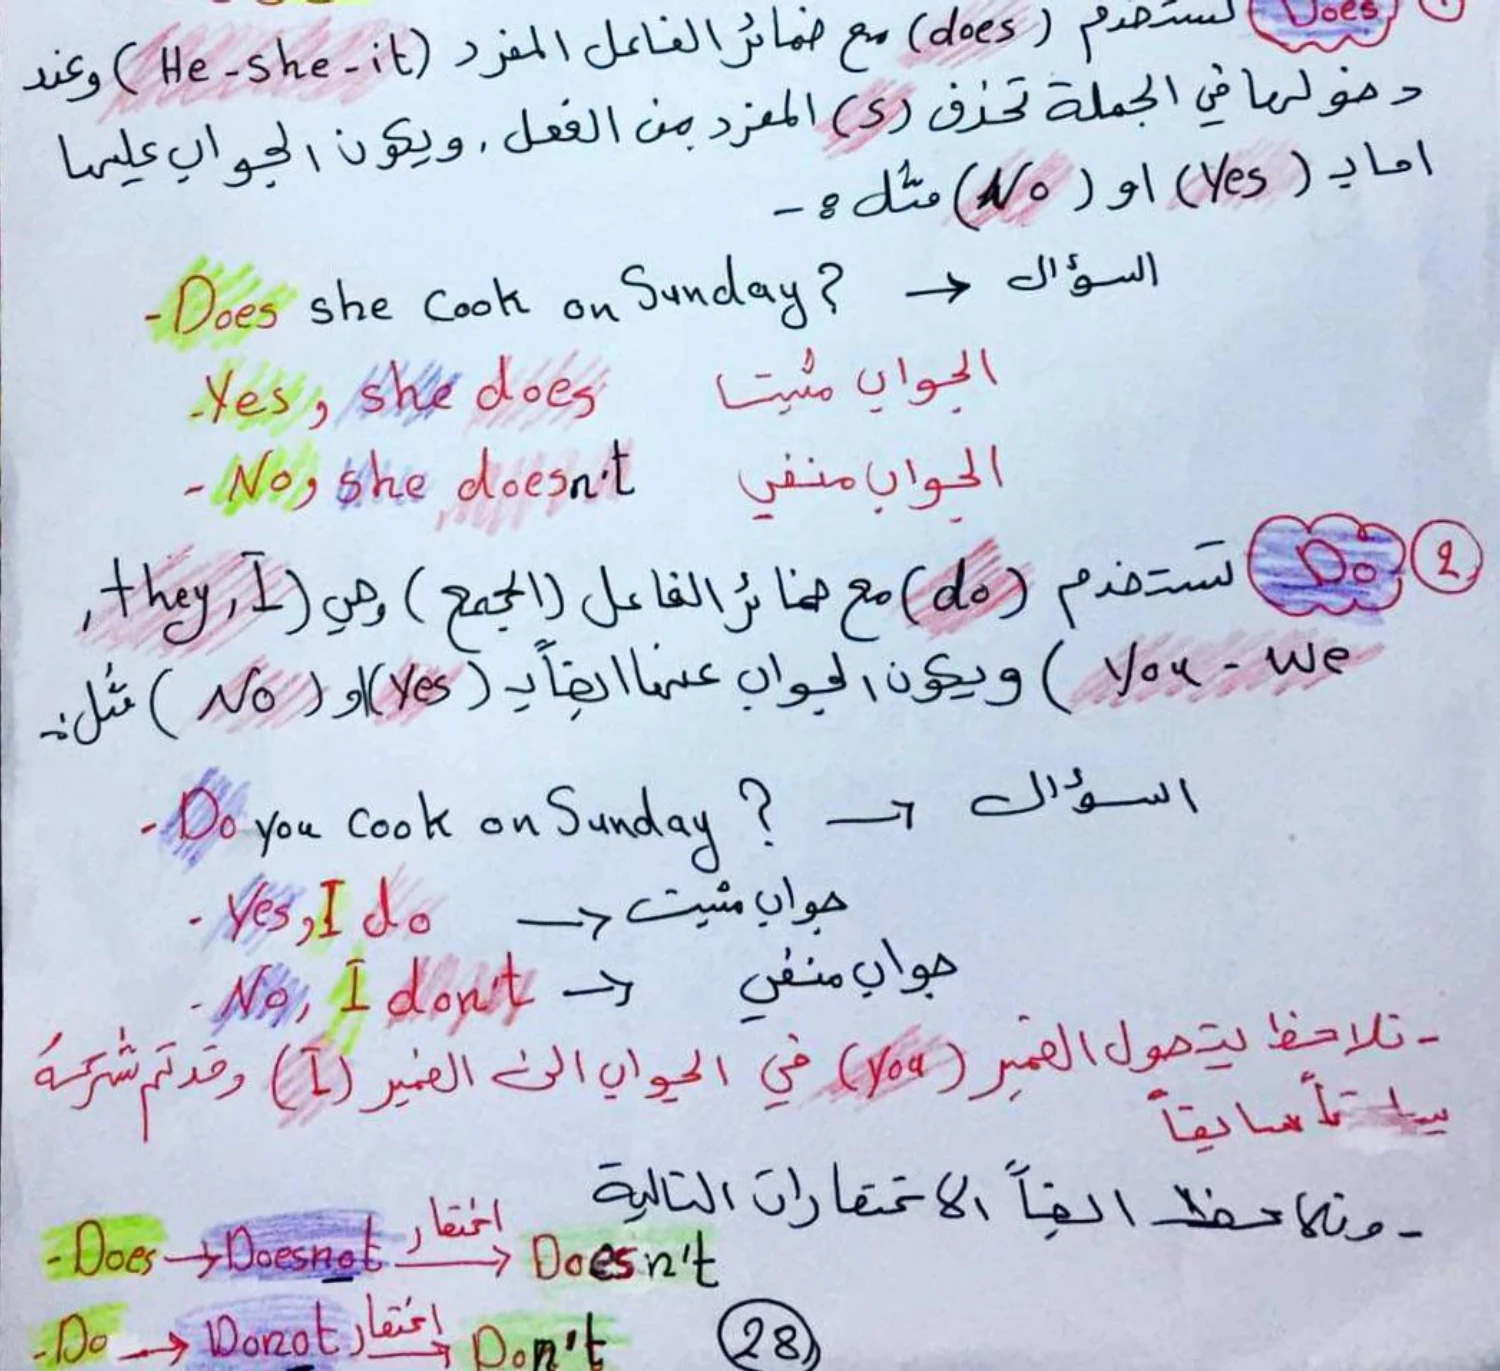 Does تستخدم (does) مع ضمائر الفاعل المفرد (He-she-it) وعند
دخولها في الجملة تحذف (s) المفرد من الفعل، ويكون الجواب عليها
اما بـ (Yes) او (No) مثل :-
-Does she cook on Sunday? → السؤال
-Yes, she does الجواب مثبتا
- No, she doesn't الجواب منفي
2 Do تستخدم (do) مع ضمائر الفاعل (الجمع) وهي (they, I,
you - we) ويكون الجواب عنها ايضاً بـ (Yes) او (No) مثل :-
- Do you cook on Sunday? → السؤال
- Yes, I do → جواب مثبت
- No, I don't → جواب منفي
- نلاحظ يتحول الضمير (you) في الجواب الى الضمير (I) وقد تم شرحهُ
سابقاً
- ونلاحظ ايضاً الاختصارات التالية
- Does → Doesnot اختصار → Doesn't
- Do → Donot اختصار → Don't
28